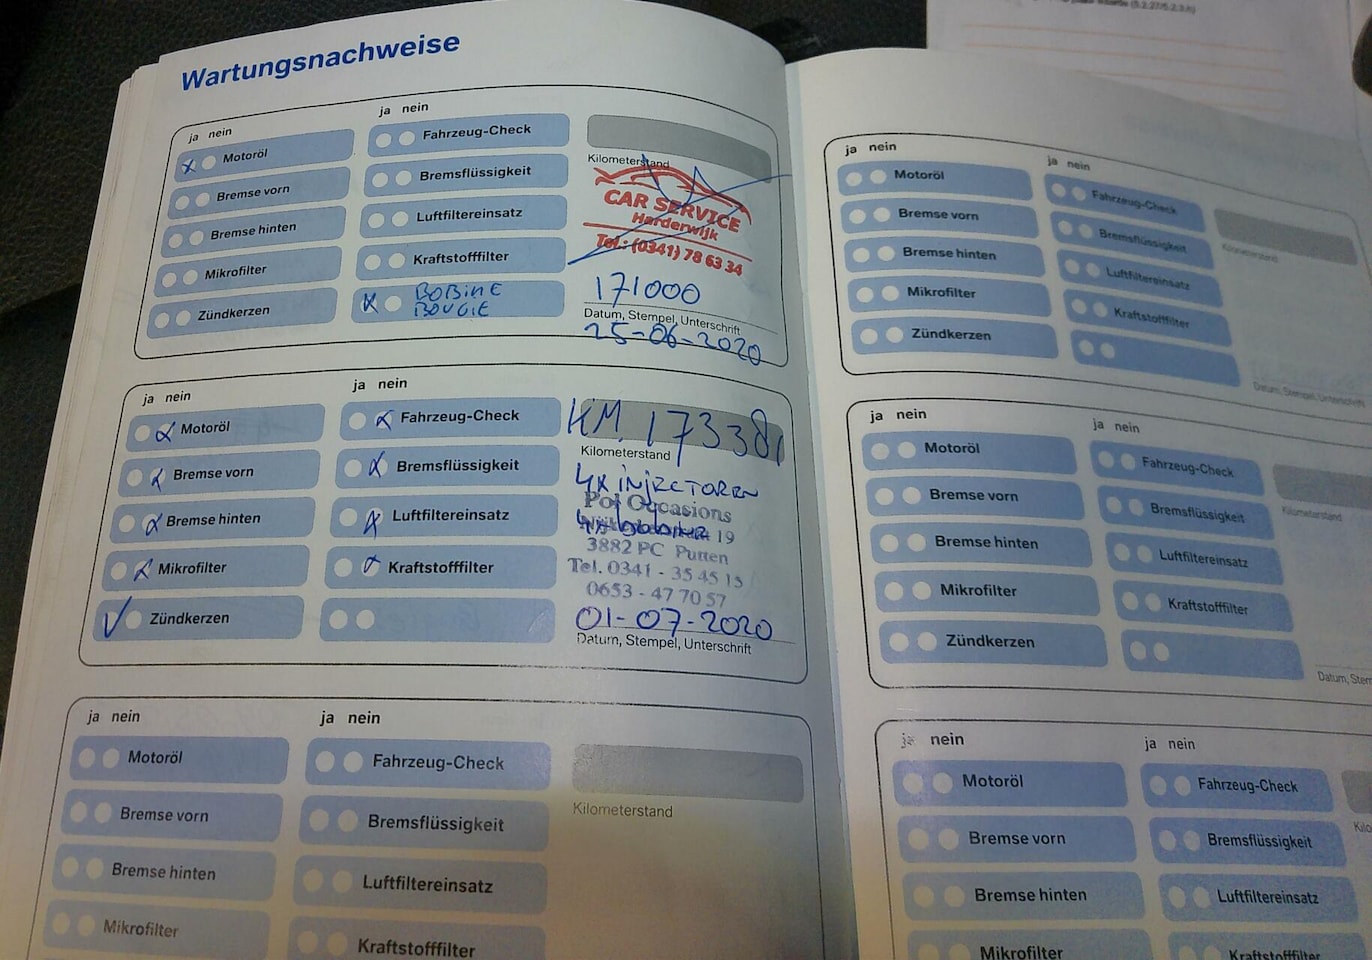 Wartungsnachweise
ja nein
Motoröl
Bremse vorn
Bremse hinten
Mikrofilter
Zündkerzen
ja nein
Fahrzeug-Check
Bremsflüssigkeit
Luftfiltereinsatz
Kraftstofffilter
BOBINE
BOUGIE
Kilometerstand
CAR SERVICE
Harderwijk
Tel.: (0341) 78 63 34
171000
Datum, Stempel, Unterschrift
25-06-2020
ja nein
Motoröl
Bremse vorn
Bremse hinten
Mikrofilter
Zündkerzen
ja nein
Fahrzeug-Check
Bremsflüssigkeit
Luftfiltereinsatz
Kraftstofffilter
KM. 173381
Kilometerstand
4x INJECTOREN
Pol Occasions
19
3882 PC Putten
Tel. 0341 - 35 45 15
0653 - 47 70 57
01-07-2020
Datum, Stempel, Unterschrift
ja nein
Motoröl
Bremse vorn
Bremse hinten
Mikrofilter
ja nein
Fahrzeug-Check
Bremsflüssigkeit
Luftfiltereinsatz
Kraftstofffilter
Kilometerstand
ja nein
Motoröl
Bremse vorn
Bremse hinten
Mikrofilter
Zündkerzen
ja nein
Fahrzeug-Check
Bremsflüssigkeit
Luftfiltereinsatz
Kraftstofffilter
Kilometerstand
Datum, Stempel, Unterschrift
ja nein
Motoröl
Bremse vorn
Bremse hinten
Mikrofilter
Zündkerzen
ja nein
Fahrzeug-Check
Bremsflüssigkeit
Luftfiltereinsatz
Kraftstofffilter
Kilometerstand
Datum, Stem
ja nein
Motoröl
Bremse vorn
Bremse hinten
Mikrofilter
ja nein
Fahrzeug-Check
Bremsflüssigkeit
Luftfiltereinsatz
Kraftstofffilter
Kilo